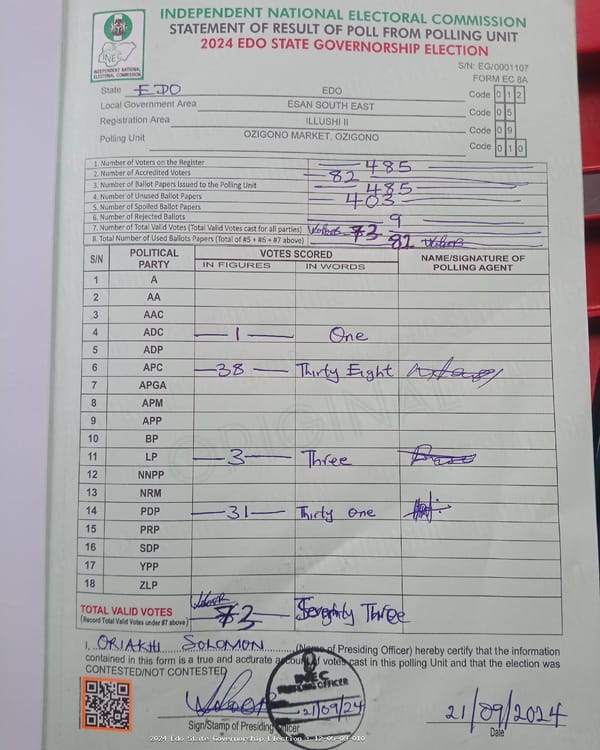 INDEPENDENT NATIONAL ELECTORAL COMMISSION
STATEMENT OF RESULT OF POLL FROM POLLING UNIT
2024 EDO STATE GOVERNORSHIP ELECTION
INEC
INDEPENDENT NATIONAL ELECTORAL COMMISSION
S/N: EG/0001107
FORM EC 8A
State EDO EDO Code 0 1 2
Local Government Area ESAN SOUTH EAST Code 0 5
Registration Area ILLUSHI II Code 0 9
Polling Unit OZIGONO MARKET, OZIGONO Code 0 1 0
1. Number of Voters on the Register 485
2. Number of Accredited Voters 82
3. Number of Ballot Papers Issued to the Polling Unit 485
4. Number of Unused Ballot Papers 403
5. Number of Spoiled Ballot Papers
6. Number of Rejected Ballots 9
7. Number of Total Valid Votes (Total Valid Votes cast for all parties) 73
8. Total Number of Used Ballots Papers (Total of #5 + #6 + #7 above) 82
S/N POLITICAL PARTY VOTES SCORED NAME/SIGNATURE OF POLLING AGENT
IN FIGURES IN WORDS
1 A
2 AA
3 AAC
4 ADC 1 One
5 ADP
6 APC 38 Thirty Eight
7 APGA
8 APM
9 APP
10 BP
11 LP 3 Three
12 NNPP
13 NRM
14 PDP 31 Thirty One
15 PRP
16 SDP
17 YPP
18 ZLP
ORIGINAL
TOTAL VALID VOTES 73 Three
(Record Total Valid Votes under #7 above)
I, ORIAKHI SOLOMON (Name of Presiding Officer) hereby certify that the information
contained in this form is a true and accurate account of votes cast in this polling Unit and that the election was
CONTESTED/NOT CONTESTED
INEC
PRESIDING OFFICER
21/09/24
Sign/Stamp of Presiding Officer
21/09/2024
Date
2024 Edo State Governorship Election - 12-05-09-010